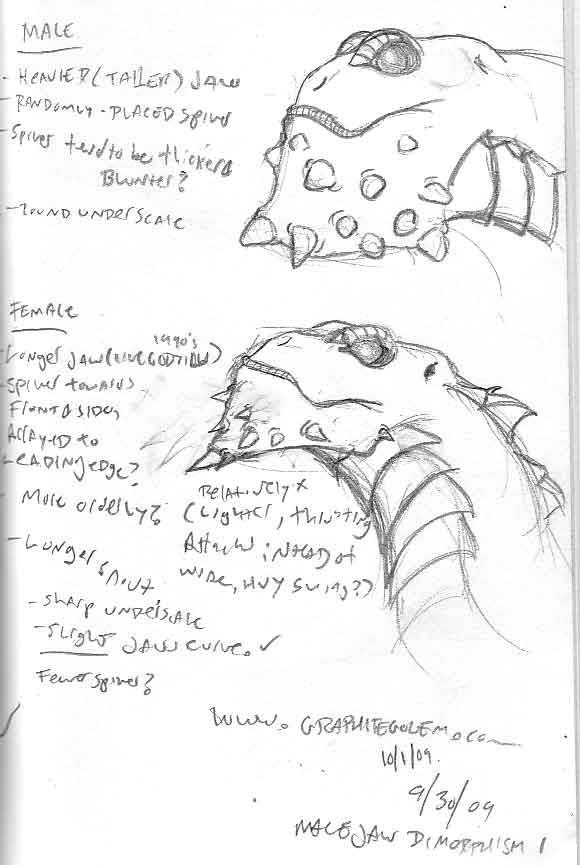 MALE
- HEAVIER (TALLER) JAW
- RANDOMLY-PLACED SPINES
- SPINES tend to be thicker &
BLUNTER?
- ROUND UNDERSCALE
FEMALE
1990's
- LONGER JAW (LIKE GODZILLA)
- SPINES TOWARDS
FRONT & SIDES,
ARRAY-ED TO
LEADING EDGE?
- MORE ORDERLY?
RELATIVELY
(LIGHTER, THRUSTING
ATTACKS INSTEAD OF
WIDE, HVY SWING?)
- LONGER SNOUT
- SHARP UNDERSCALE
- SLIGHT JAW CURVE. ✓
FEWER SPINES?
WWW.GRAPHITEGOLEM.COM
10/1/09.
9/30/09
MALE JAW DIMORPHISM 1